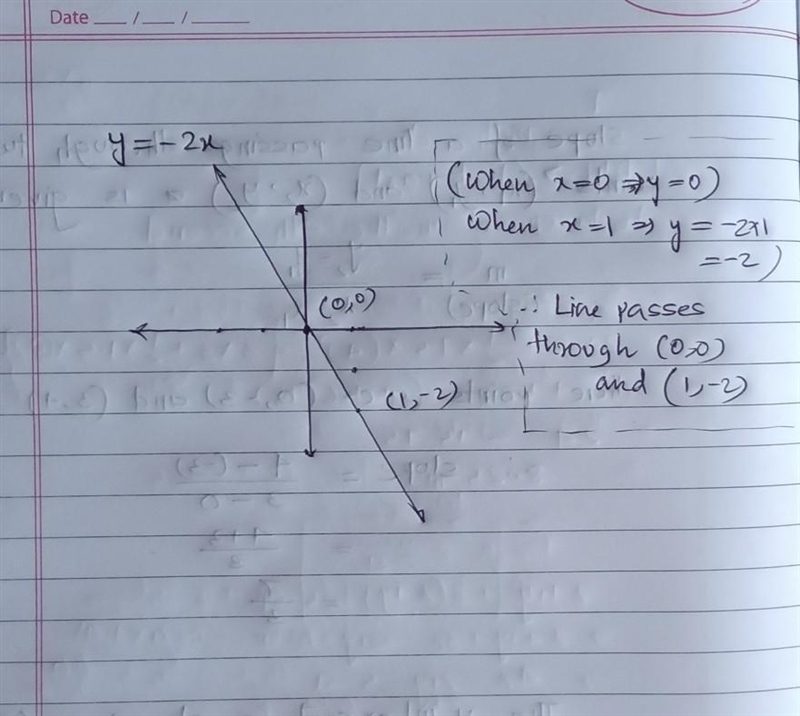 Date ___ / ___ / ______
y = -2x
(When x=0 ⇒ y=0)
When x=1 ⇒ y = -2×1
= -2)
(0,0)
∴ Line passes
through (0,0)
and (1,-2)
(1,-2)